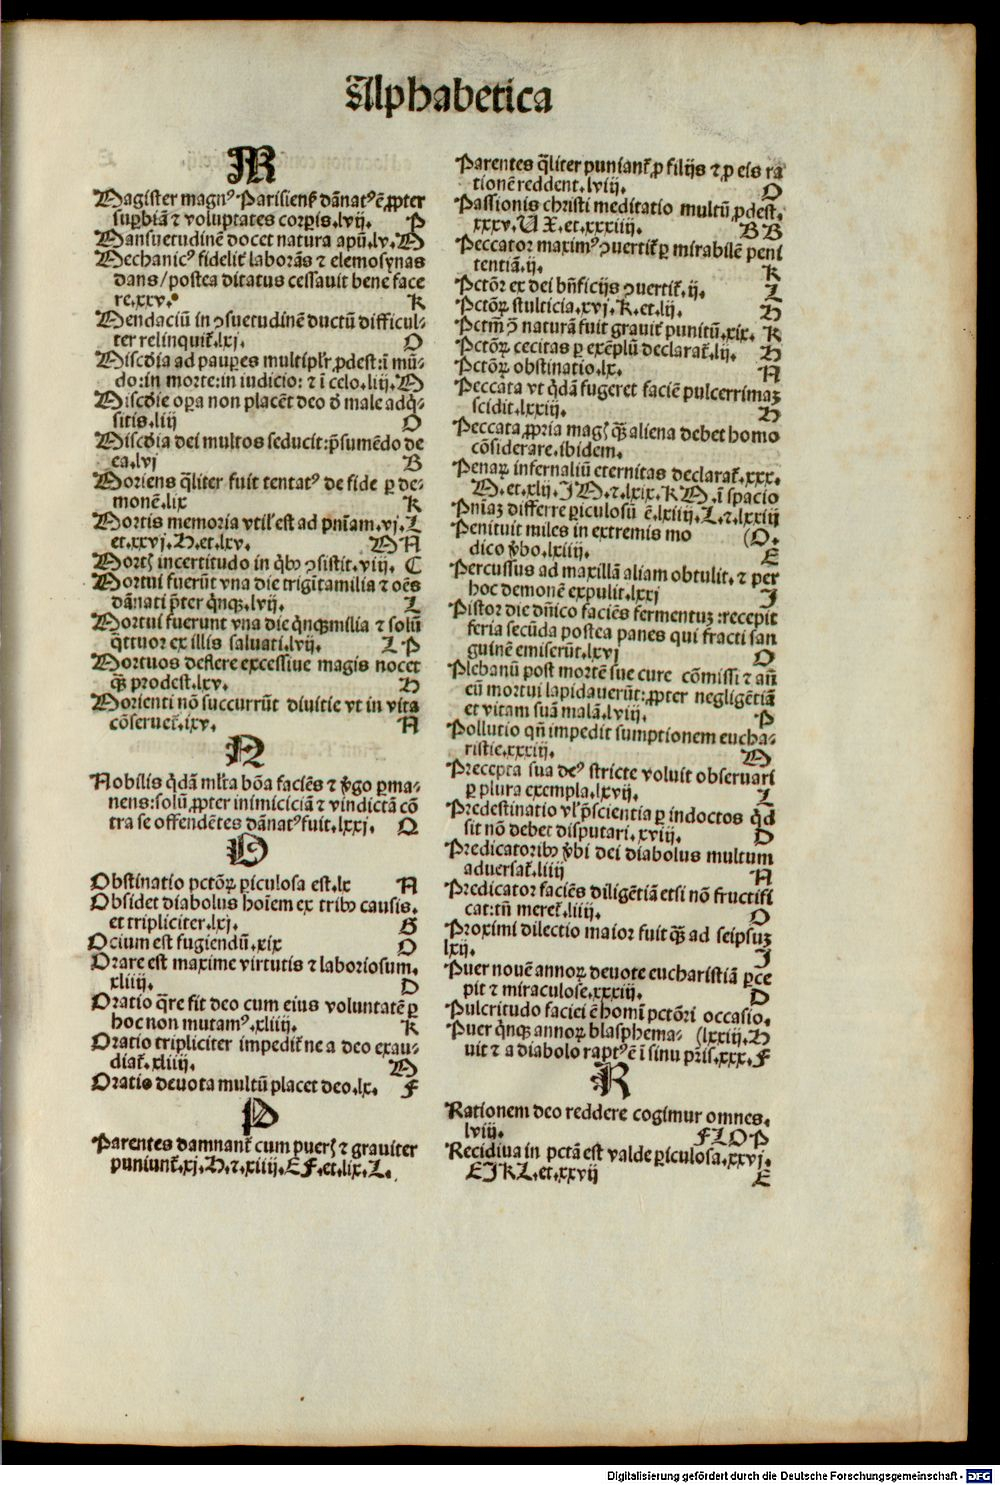 Alphabetica
M
Magister magnꝰ Parisienẜ dānatꝰ ē ꝓpter
suꝑbiā ⁊ voluptates corꝑis.lvij. P
Mansuetudinē docet natura apū.lv.M
Mechanicꝰ fidelit̄ laborās ⁊ elemosynas
dans/postea ditatus cessauit bene face
re.xxv. K
Mendaciū in ꝯsuetudinē ductū difficul⸗
ter relinquit̄.lxj. O
Miscďia ad pauꝑes multipl'r ꝓdest:ī mū⸗
do:in morte:in iudicio: ⁊ ī celo.liij.M
Miscďie oꝑa non placēt deo ď male adq̄⸗
sitis.liij O
Miscďia dei multos seducit:p̄sumēdo de
ea.lvj B
Moriens q̄liter fuit tentatꝰ de fide ꝑ de⸗
monē.lix K
Mortis memoria vtil' est ad pnīam.vj.L
et.xxvj.H.et.lxv. M A
Mortꝭ incertitudo in q̄bꝰ ꝯsistit.viij. C
Mortui fuerūt vna die trigītamilia ⁊ oēs
dānati p̄ter q̄nqꝫ.lvij. L
Mortui fuerunt vna die q̄nqꝫmilia ⁊ solū
q̄ttuor ex illis saluati.lvij. L P
Mortuos deflere excessiue magis nocet
qꝫ̄ prodest.lxv. H
Morienti nō succurrūt diuitie vt in vita
cōseruet̄.ixv. A
N
Nobilis q̄dā ml'ta bōa faciēs ⁊ v̄go ꝑma⸗
nens:solū ꝓpter inimiciciā ⁊ vindictā cō
tra se offendētes dānatꝰ fuit.lxxj. Q
O
Obstinatio pctōꝝ ꝑiculosa est.lx A
Obsidet diabolus hoīem ex tribꝰ causis.
et tripliciter.lxj. G
Ocium est fugiendū.xix O
Orare est maxime virtutis ⁊ laboriosum.
xliiij. D
Oratio q̄re fit deo cum eius voluntatē ꝑ
hoc non mutamꝰ.xliiij. K
Oratio tripliciter impedit̄ ne a deo exau⸗
diat̄.xliiij. M
Oratio deuota multū placet deo.lx. F
P
Parentes damnant̄ cum puerꝭ ⁊ grauiter
puniunt̄.xj.H.⁊.xliij.E F.et.lix.L.
Parentes q̄liter puniant̄ ꝓ filijs ⁊ ꝓ eis ra
tionē reddent.lviij. O
Passionis christi meditatio multū ꝓdest.
xxxv.U X.et.xxxiiij. B B
Peccator maximꝰ ꝯuertit̄ ꝑ mirabilē peni
tentiā.ij. K
Pctōr ex dei bn̄ficijs ꝯuertit̄.ij. L
Pctōꝝ stulticia.xvj.K.et.lij. H
Pctm̄ ꝯ̄ naturā fuit grauit̄ punitū.xix. K
Pctōꝝ cecitas ꝑ exēplū declarat̄.lij. H
Pctōꝝ obstinatio.lx. A
Peccata vt q̄dā fugeret faciē pulcerrimaꝫ
scidit.lxxiij. H
Peccata ꝓpria magꝭ qꝫ̄ aliena debet homo
cōsiderare.ibidem.
Penaꝝ infernaliū eternitas declarat̄.xxx.
M.et.xlij.I M.⁊.lxix.K M.ī spacio
Pnīaꝫ differre ꝑiculosū ē.lxiiij.L.⁊.lxxiij
Penituit miles in extremis mo (O.
dico v̄bo.lxiiij. E
Percussus ad maxillā aliam obtulit. ⁊ per
hoc demonē expulit.lxxj I
Pistor die dn̄ico faciēs fermentuꝫ:recepit
feria secūda postea panes qui fracti san
guinē emiserūt.lxvj O
Plebanū post mortē sue cure cōmissi ⁊ añ
eū mortui lapidauerūt:ꝓpter negligētiā
et vitam suā malā.lviij. P
Pollutio qn̄ impedit sumptionem eucha⸗
ristie.xxxiij. M
Precepta sua deꝰ stricte voluit obseruari
ꝑ plura exempla.lxvij. L
Predestinatio vl' p̄scientia ꝑ indoctos q̄d
sit nō debet disputari.xviij. D
Predicatoribꝰ v̄bi dei diabolus multum
aduersat̄.liiij A
Predicator faciēs diligētiā etsi nō fructifi
cat:tn̄ meret̄.liiij. O
Proximi dilectio maior fuit qꝫ̄ ad seipsuꝫ
lxij. I
Puer nouē annoꝝ deuote eucharistiā ꝑce
pit ⁊ miraculose.xxxiij. D
Pulcritudo faciei ē homī pctōri occasio.
Puer q̄nqꝫ annoꝝ blasphema⸗ (lxxiij.H
uit ⁊ a diabolo raptꝰ ē ī sinu pr̄is.xxx.F
R
Rationem deo reddere cogimur omnes.
lviij. F L O P
Recidiua in pctā est valde ꝑiculosa.xxvj.
E I K L.et.xxvij E
Digitalisierung gefördert durch die Deutsche Forschungsgemeinschaft - DFG